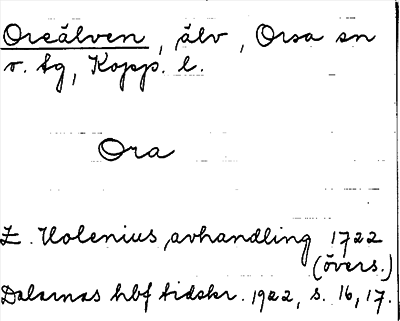 Oreälven, älv, Orsa sn
v. tg, Kopp. l.
Ora
E. Holenius avhandling 1722
(övers.)
Dalarnas hbf tidskr. 1922, s. 16, 17.